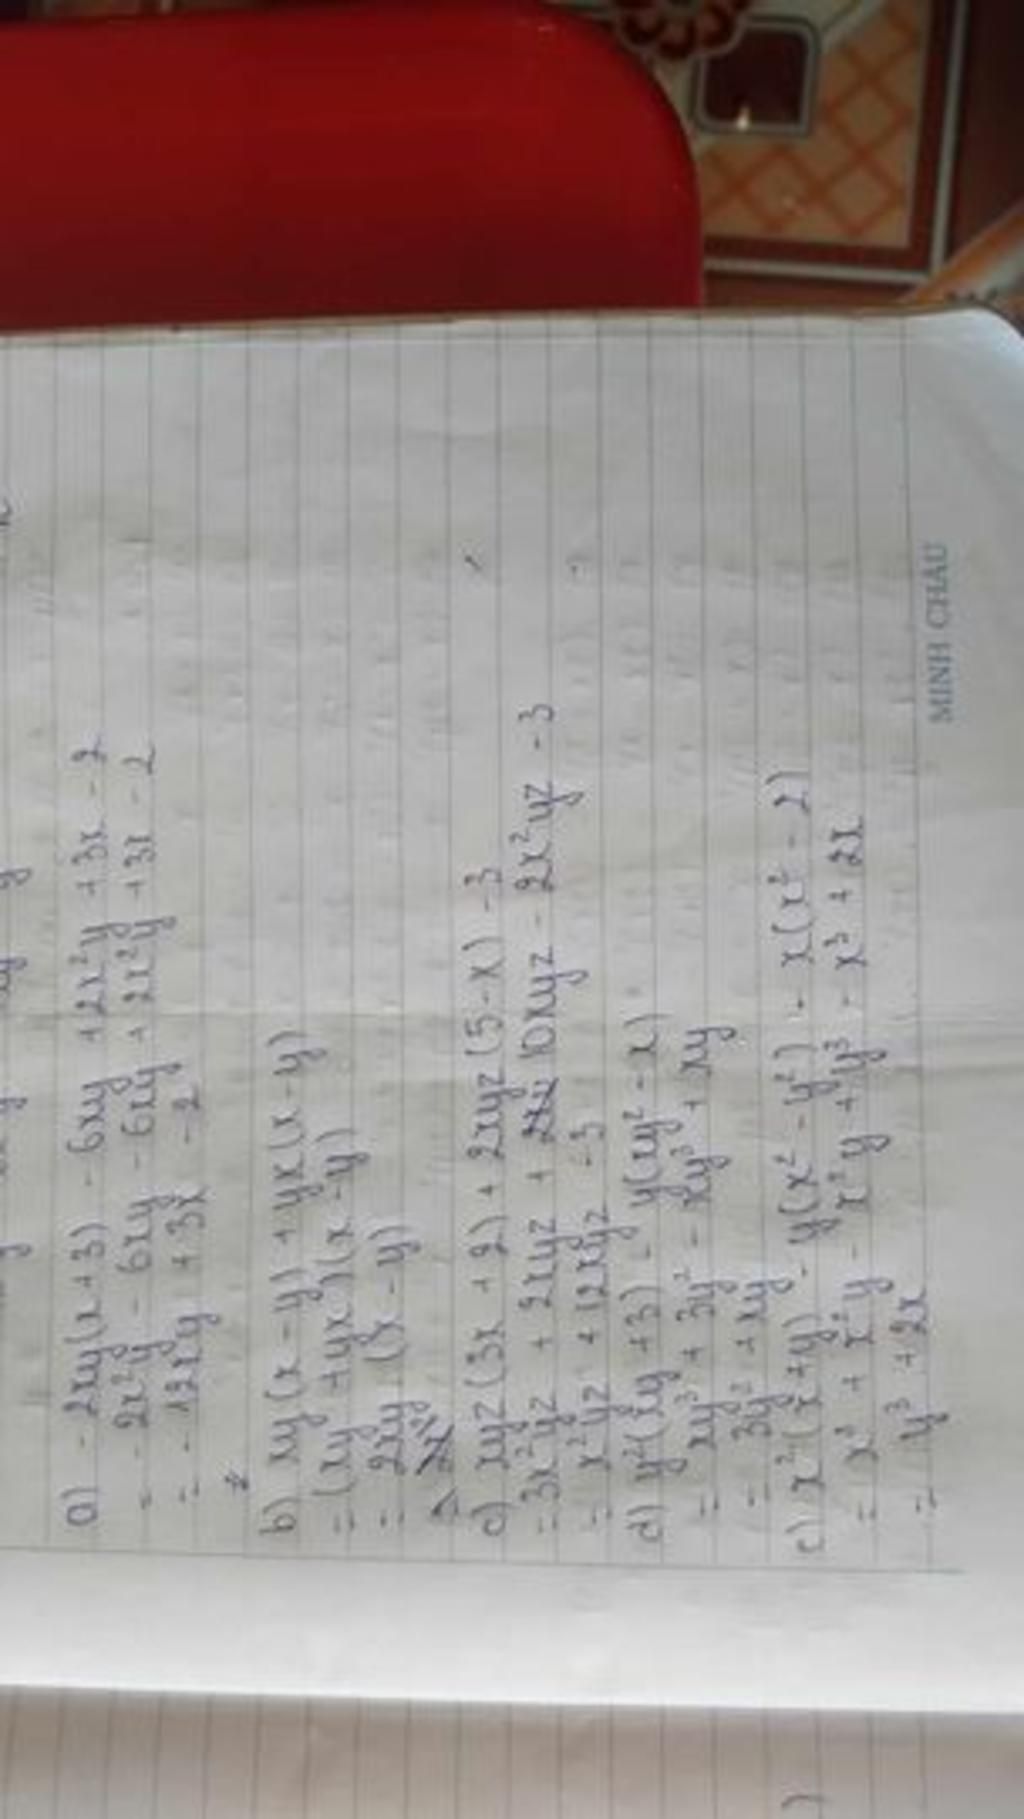 a) - 2xy(x + 3) - 6xy + 2x²y + 3x - 2
= - 2x²y - 6xy - 6xy + 2x²y + 3x - 2
= - 12xy + 3x - 2
b) xy(x - y) + yx(x - y)
= (xy + yx)(x - y)
= 2xy (x - y)
c) xyz(3x + 2) + 2xyz(5 - x) - 3
= 3x²yz + 2xyz + 10xyz - 2x²yz - 3
= x²yz + 12xyz - 3
d) y²(xy + 3) - y(xy² - x)
= xy³ + 3y² - xy³ + xy
= 3y² + xy
x²(x + y) - y(x² - y²) - x(x² - 2)
= x³ + x²y - x²y + y³ - x³ + 2x
= y³ + 2x
MINH CHÂU